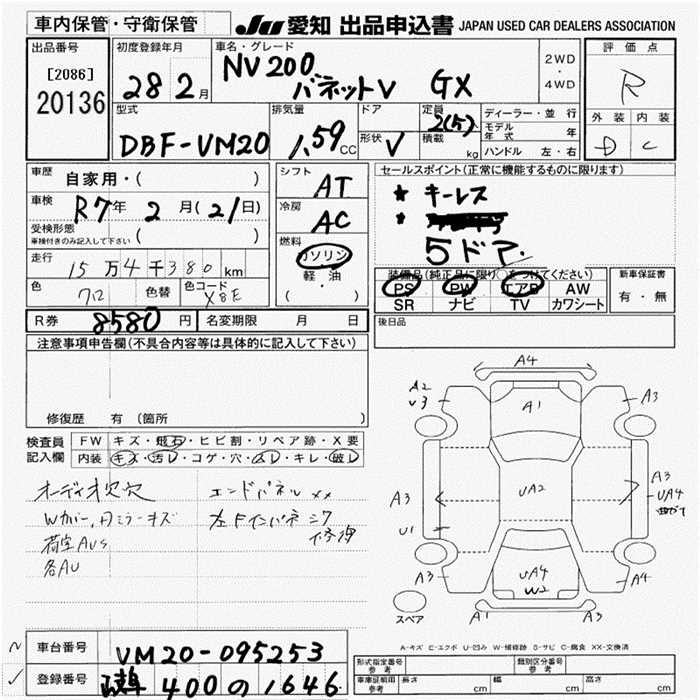 車内保管・守衛保管
JU 愛知 出品申込書 JAPAN USED CAR DEALERS ASSOCIATION
出品番号
[2086]
20136
初度登録年月
28 2月
車名・グレード
NV200
バネットV GX
2WD
・
4WD
評価点
R
外装 内装
D C
型式
DBF-VM20
排気量
1.59 CC
ドア
形状 V
定員
2(5)
積載 kg
ディーラー・並行
モデル年式 年
ハンドル 左・右
車歴
自家用・( )
車検
R7年 2月(21日)
受検形態
車検付きのみ記入して下さい ( )
走行
15万4千380km
色 クロ 色替 色コード X8E
シフト
AT
冷房
AC
燃料
ガソリン
軽・油
( )
セールスポイント(正常に機能するものに限ります)
★ キーレス
★
5ドア.
装備品(純正品に限り○をつけてください)
PS PW エアB AW
SR ナビ TV カワシート
新車保証書
有・無
R券 8580円 名変期限 月 日
後日品
注意事項申告欄(不具合内容等は具体的に記入して下さい)
修復歴 有 (箇所
検査員
記入欄
FW キズ・飛石・ヒビ割・リペア跡・X要
内装 キズ・汚レ・コゲ・穴・スレ・キレ・破レ
オーディオ欠穴
Wカバー,
キズ
荷室AUS
各AU
エンドパネル xx
左Fインパネ
修理
A4
A2
U3
A1
A3
A3
UA2
A3
UA4
U1
A3
UA4
W2
A4
A1
A3
スペア
A-キズ E-エクボ U-凹み W-補修跡 S-サビ C-腐食 XX-交換済
車台番号 VM20-095253
登録番号 400の1646
型式指定番号
参考
類別区分番号
参考
車庫証明用
参考
長さ cm 幅 cm 高さ cm